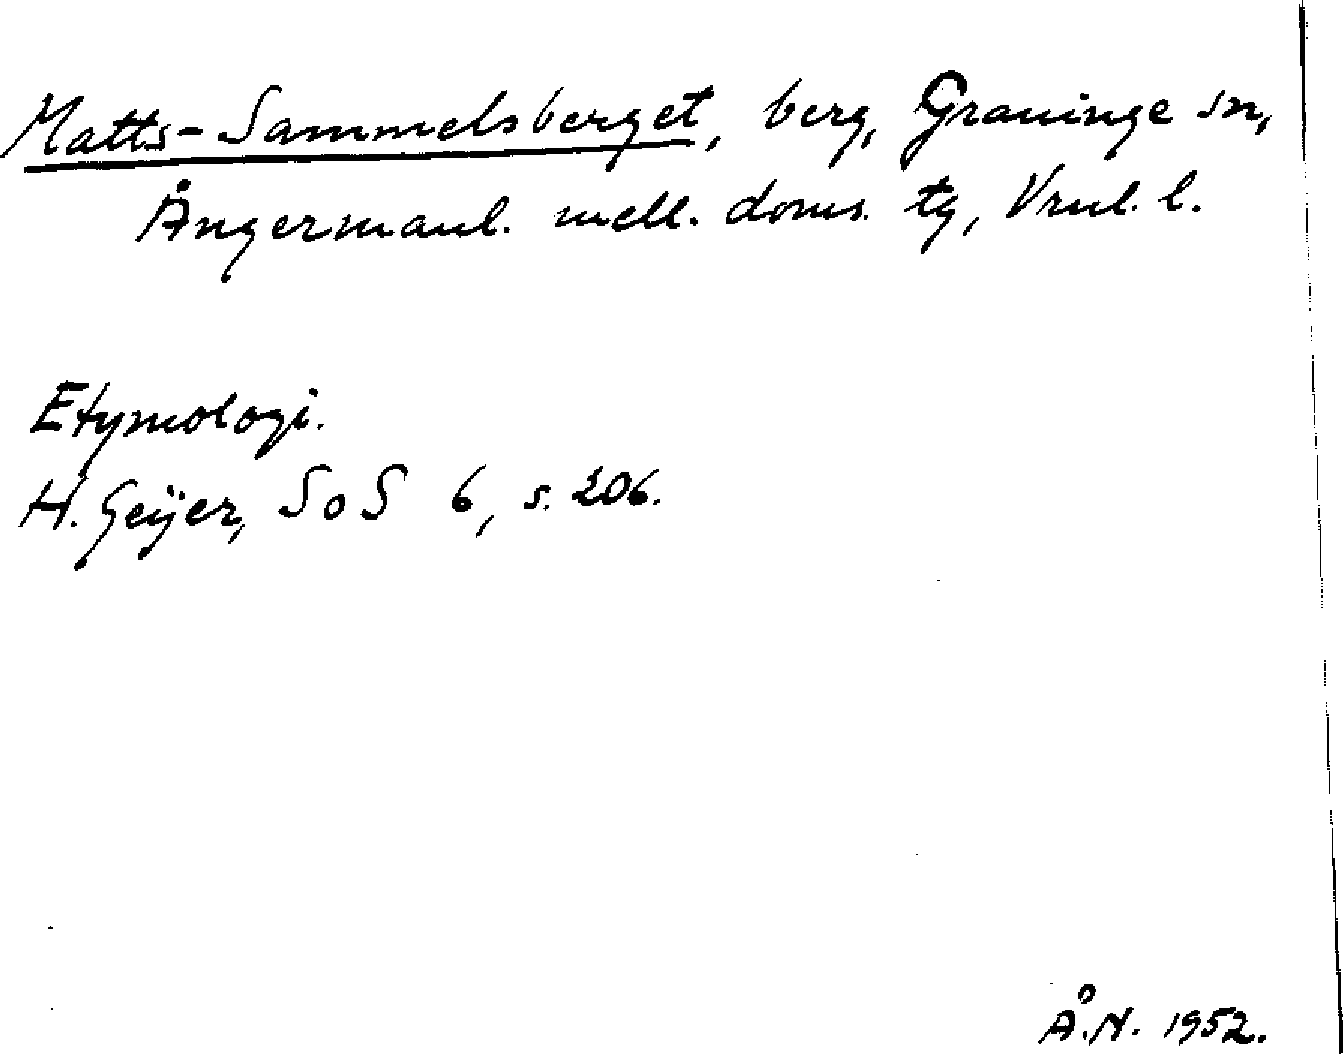 Matts-Sammelsberget, berg, Graninge sn,
Ångermanl. mell. doms. tg, Vrnl. l.
Etymologi.
H. Geijer, SoS 6, s. 206.
Å.N. 1952.